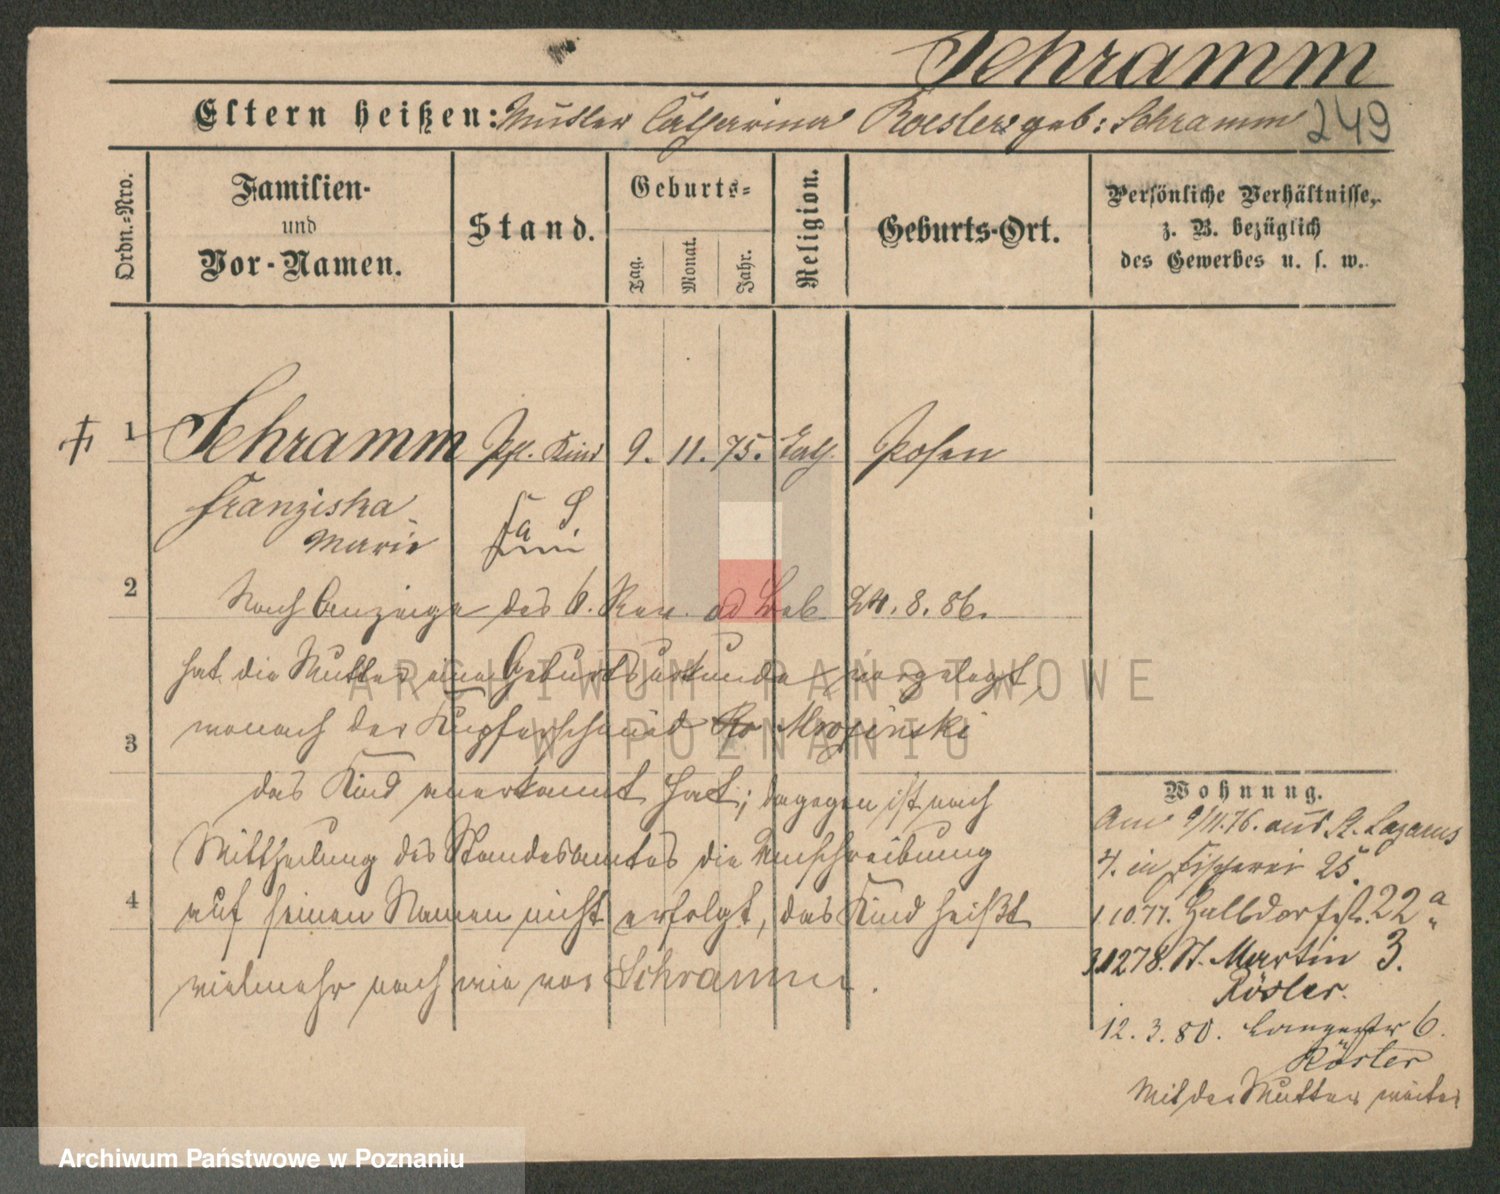 Schramm
Eltern heißen: Mutter Catharina Roesler geb: Schramm 249
Ordn.-Nro.
Familien-
und
Vor-Namen.
Stand.
Geburts-
Tag.
Monat.
Jahr.
Religion.
Geburts-Ort.
Persönliche Verhältnisse,
z. B. bezüglich
des Gewerbes u. s. w.
1 Schramm Kind 9. 11. 75. Posen
Franziska
Marie
2
Nach Anzeige des 6. Rev. 24. 8. 86.
hat die Mutter eine Geburtsurkunde vorgelegt,
wonach der Kupferschmied Mrozinski
3
das Kind anerkannt hat; dagegen ist nach
Mittheilung des Standesamtes die Umschreibung
4
auf seinen Namen nicht erfolgt, das Kind heißt
vielmehr nach wie vor Schramm.
Wohnung.
Am 9/11.76. aus St. Lazarus
4. in Fischerei 25.
1.10.77. Halbdorfstr. 22a
78. St. Martin 3.
Rösler.
12. 3. 80. Langestr 6.
Röster
Mit der Mutter weiter
ARCHIWUM PAŃSTWOWE
W POZNANIU
Archiwum Państwowe w Poznaniu